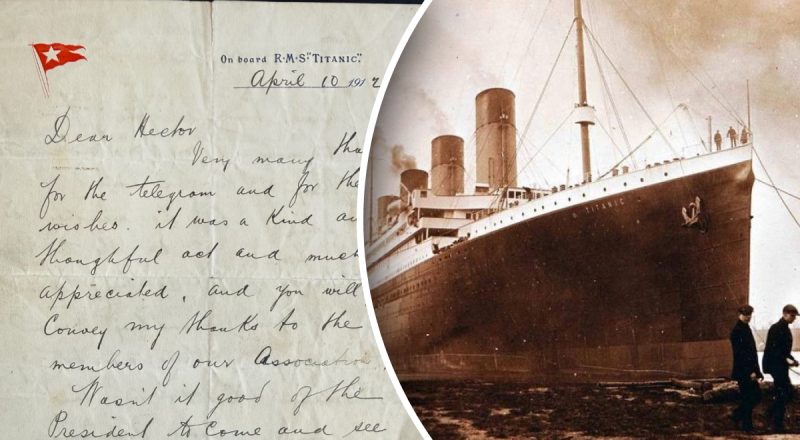 On board R·M·S "TITANIC".
April 10 1912
Dear Hector
Very many tha
for the telegram and for the
wishes. it was a kind an
thoughful act and much
appreciated, and you will
Convey my thanks to the
members of our Association,
Wasn't it good of the
President to come and see
TITANIC